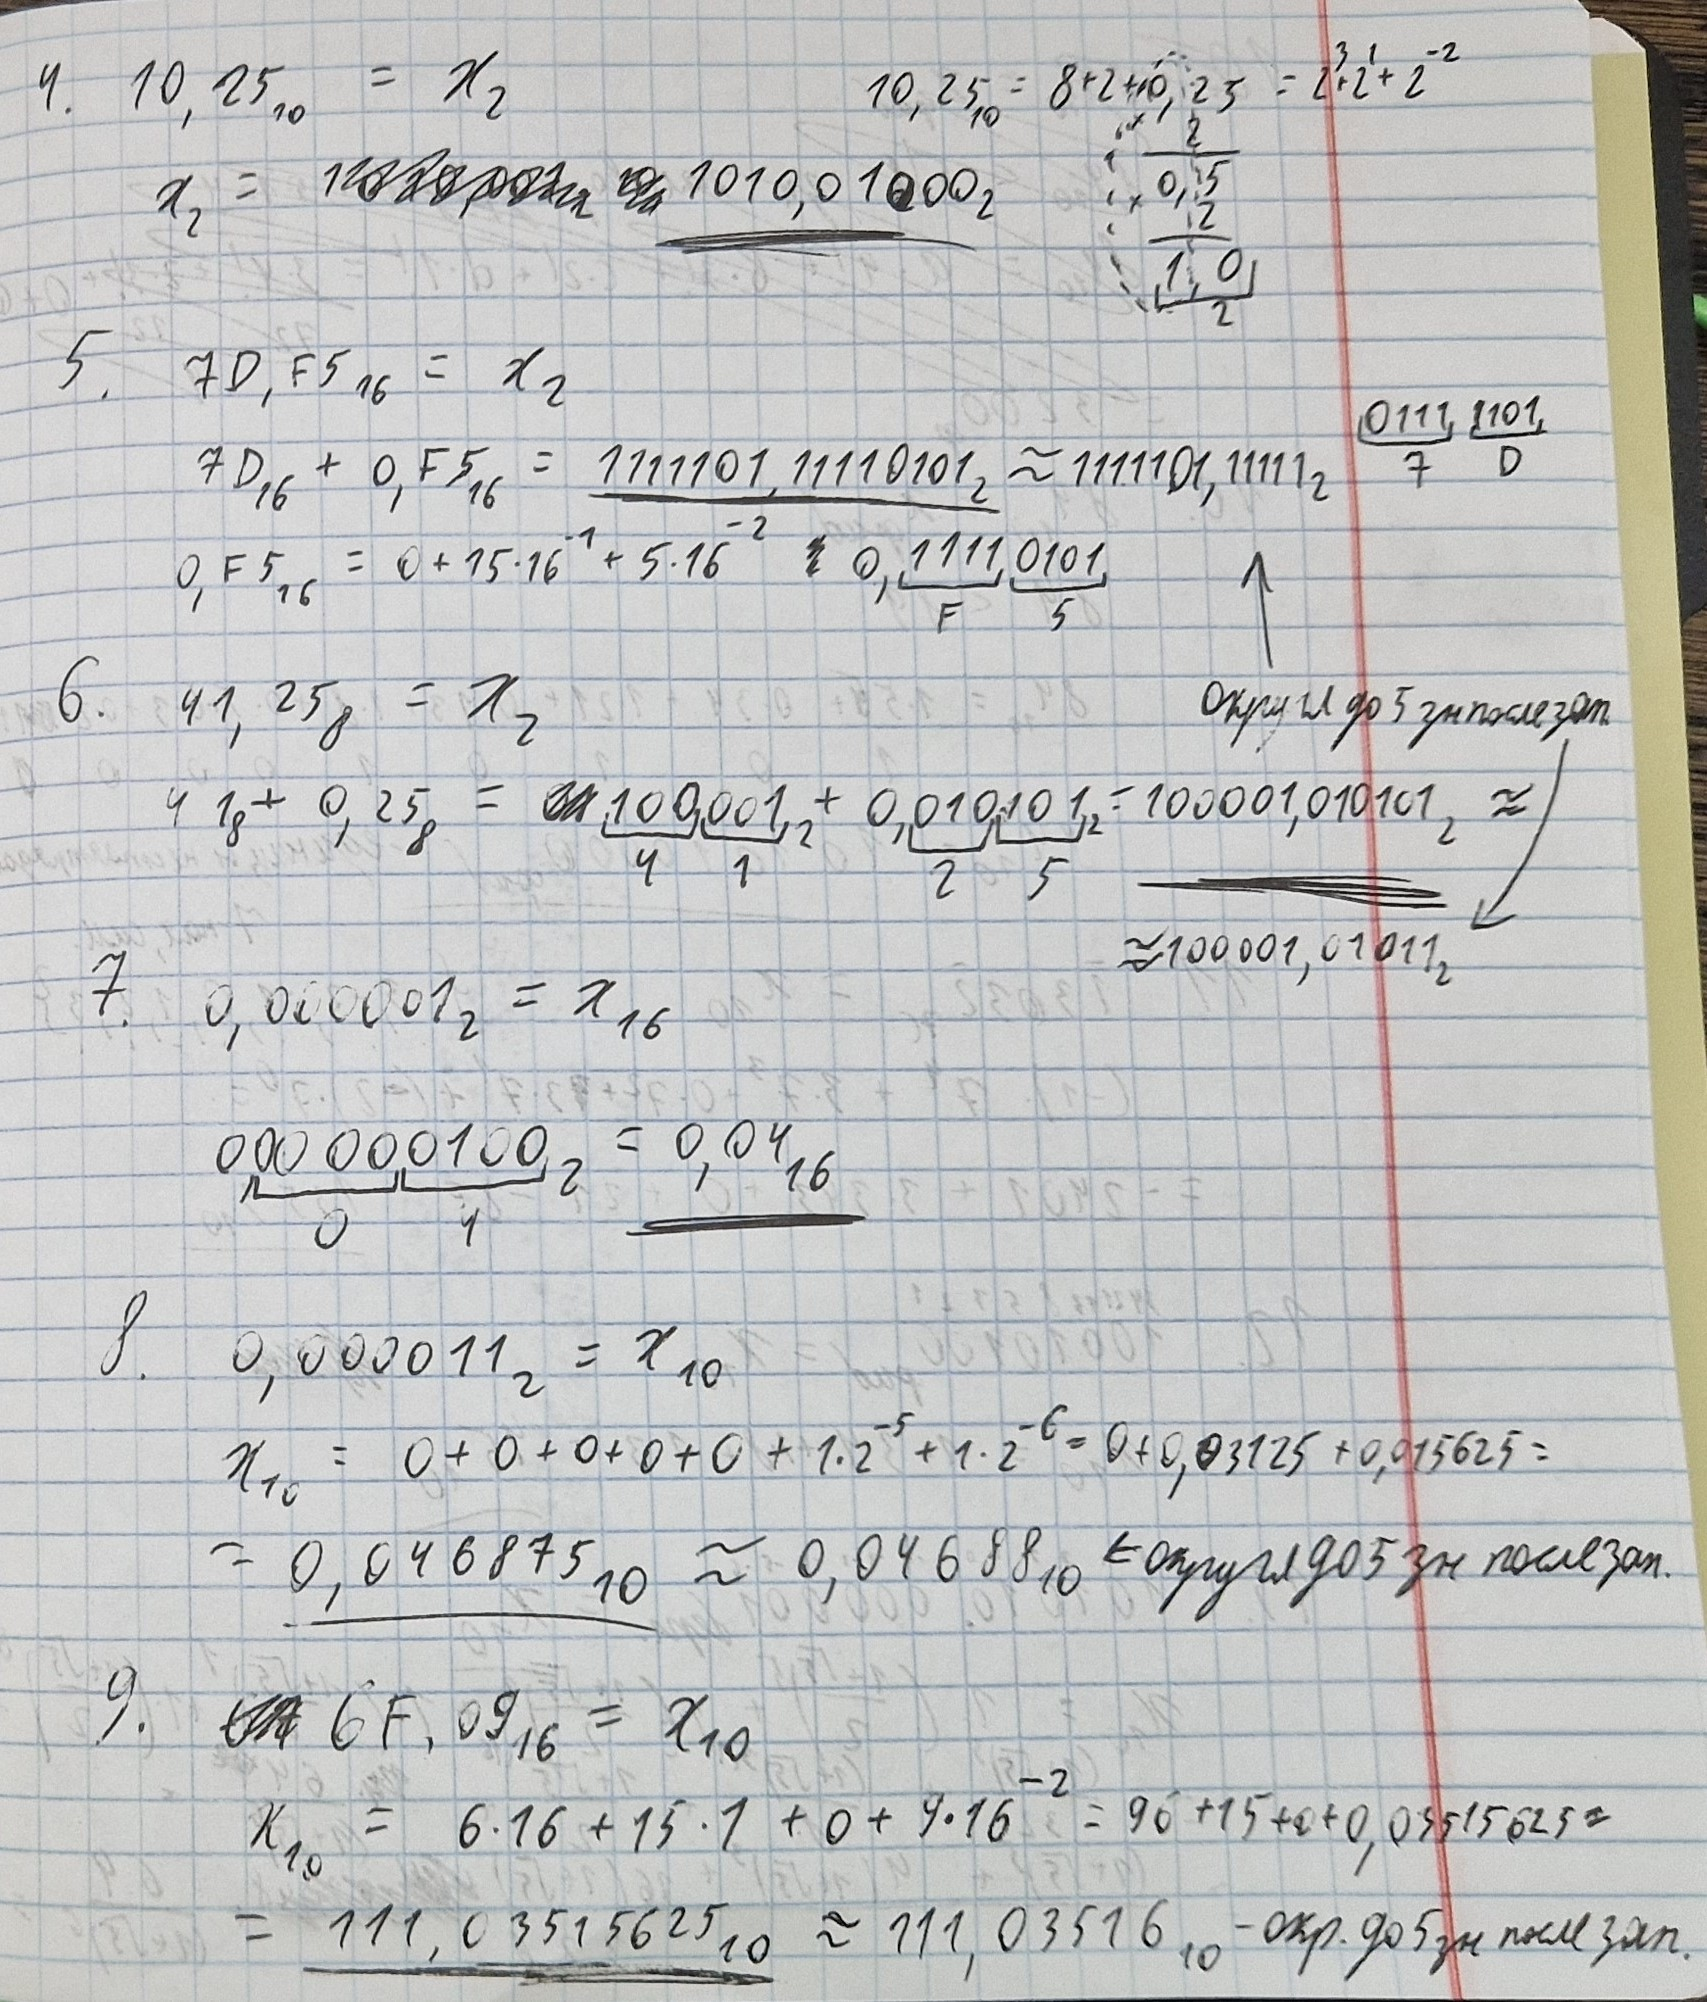 4. 10,25₁₀ = x₂
10,25₁₀ = 8+2+0,25 = 2³+2¹+2⁻²
× 2
0,5
× 2
1,0
2
x₂ = 1010,01000₂
5. 7D,F5₁₆ = x₂
0111 1101
7 D
7D₁₆ + 0,F5₁₆ = 1111101,11110101₂ ≈ 1111101,11111₂
0,F5₁₆ = 0+15·16⁻¹+5·16⁻² 0,1111 0101
F 5
6. 41,25₈ = x₂
округл до 5 зн после зап.
41₈ + 0,25₈ = 100 001₂ + 0,010 101₂ = 100001,010101₂ ≈
4 1 2 5
≈100001,01011₂
7. 0,000001₂ = x₁₆
0,0000 0100₂ = 0,04₁₆
0 4
8. 0,000011₂ = x₁₀
x₁₀ = 0+0+0+0+0+1·2⁻⁵+1·2⁻⁶ = 0+0,03125+0,015625 =
= 0,046875₁₀ ≈ 0,04688₁₀ ← округл до 5 зн после зап.
9. 6F,09₁₆ = x₁₀
x₁₀ = 6·16+15·1+0+9·16⁻² = 96+15+0+0,03515625 =
= 111,03515625₁₀ ≈ 111,03516₁₀ - окр. до 5 зн после зап.